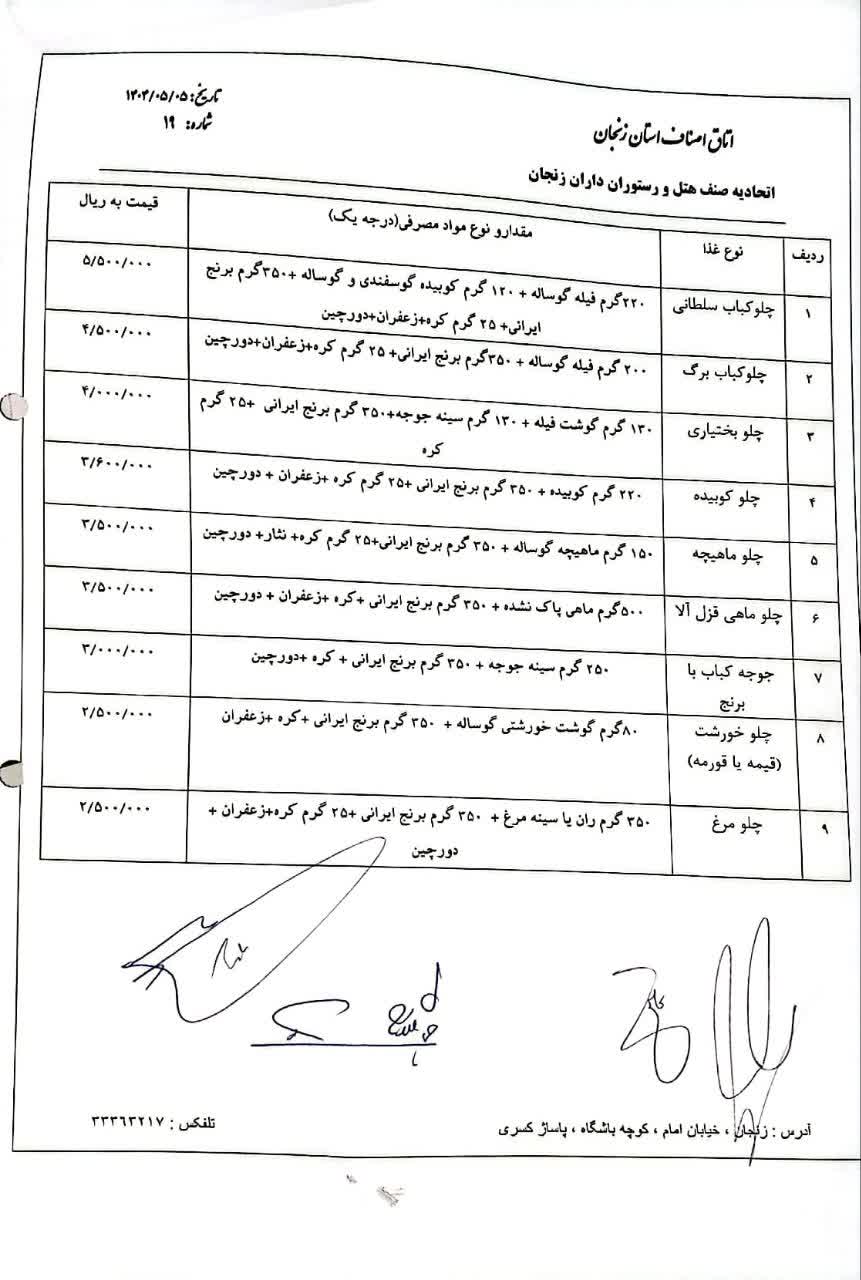 تاریخ: ۱۴۰۴/۰۵/۰۵
شماره: ۱۹
اتاق اصناف استان زنجان
اتحادیه صنف هتل و رستوران داران زنجان
ردیف نوع غذا مقدارو نوع مواد مصرفی(درجه یک) قیمت به ریال
۱ چلوکباب سلطانی ۲۲۰گرم فیله گوساله + ۱۲۰ گرم کوبیده گوسفندی و گوساله +۳۵۰گرم برنج ۵/۵۰۰/۰۰۰
ایرانی+ ۲۵ گرم کره+زعفران+دورچین
۲ چلوکباب برگ ۲۰۰ گرم فیله گوساله + ۳۵۰گرم برنج ایرانی+ ۲۵ گرم کره+زعفران+دورچین ۴/۵۰۰/۰۰۰
۳ چلو بختیاری ۱۳۰ گرم گوشت فیله + ۱۳۰ گرم سینه جوجه+۳۵۰ گرم برنج ایرانی +۲۵ گرم ۴/۰۰۰/۰۰۰
کره
۴ چلو کوبیده ۲۲۰ گرم کوبیده + ۳۵۰ گرم برنج ایرانی +۲۵ گرم کره +زعفران + دورچین ۳/۶۰۰/۰۰۰
۵ چلو ماهیچه ۱۵۰ گرم ماهیچه گوساله + ۳۵۰ گرم برنج ایرانی+۲۵ گرم کره+ نثار+ دورچین ۳/۵۰۰/۰۰۰
۶ چلو ماهی قزل آلا ۵۰۰گرم ماهی پاک نشده + ۳۵۰ گرم برنج ایرانی +کره +زعفران + دورچین ۳/۵۰۰/۰۰۰
۷ جوجه کباب با ۲۵۰ گرم سینه جوجه + ۳۵۰ گرم برنج ایرانی + کره +دورچین ۳/۰۰۰/۰۰۰
برنج
۸ چلو خورشت ۸۰گرم گوشت خورشتی گوساله + ۳۵۰ گرم برنج ایرانی +کره +زعفران ۲/۵۰۰/۰۰۰
(قیمه یا قورمه)
۹ چلو مرغ ۳۵۰ گرم ران یا سینه مرغ + ۳۵۰ گرم برنج ایرانی +۲۵ گرم کره+زعفران + ۲/۵۰۰/۰۰۰
دورچین
آدرس : زنجان ، خیابان امام ، کوچه باشگاه ، پاساژ کسری تلفکس : ۳۳۳۶۳۲۱۷